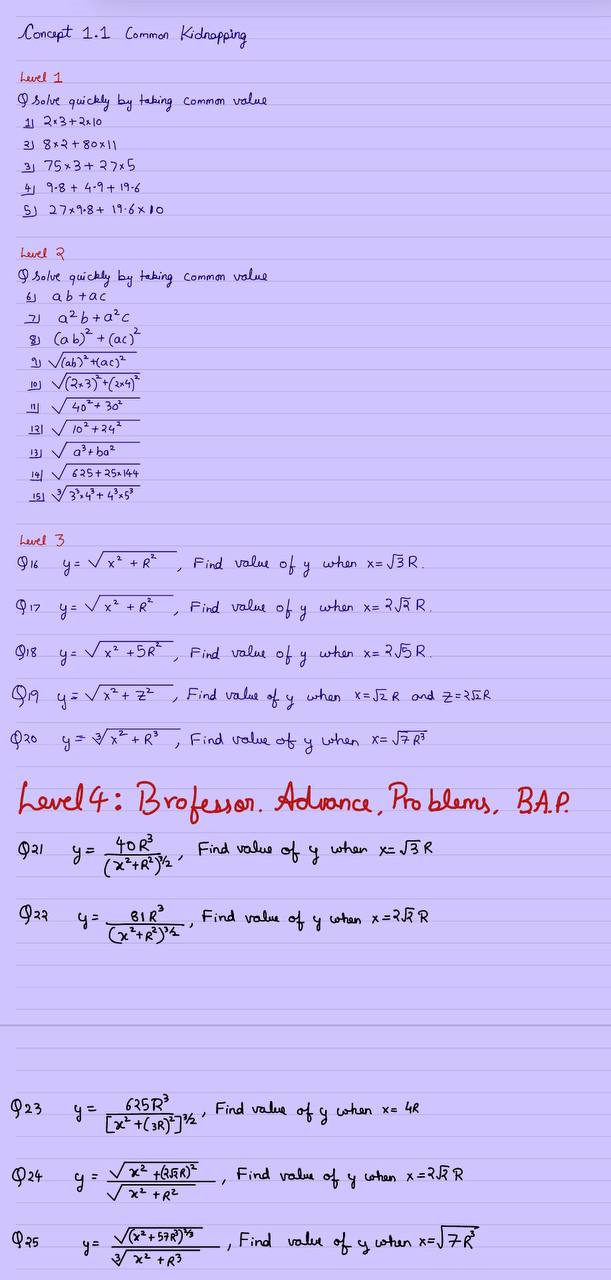 Concept 1.1 Common Kidnapping
Level 1
Q Solve quickly by taking common value
1) 2×3+2×10
2) 8×2+80×11
3) 75×3+27×5
4) 9.8+4.9+19.6
5) 27×9.8+19.6×10
Level 2
Q Solve quickly by taking common value
6) ab+ac
7) a²b+a²c
8) (ab)²+(ac)²
9) √((ab)²+(ac)²)
10) √((2×3)²+(2×4)²)
11) √(40²+30²)
12) √(10²+24²)
13) √(a³+ba²)
14) √(625+25×144)
15) ∛(3³×4³+4³×5³)
Level 3
Q16 y = √(x²+R²), Find value of y when x=√3R.
Q17 y = √(x²+R²), Find value of y when x=2√2R.
Q18 y = √(x²+5R²), Find value of y when x=2√5R.
Q19 y = √(x²+z²), Find value of y when x=√2R and z=2√2R
Q20 y = ∛(x²+R³), Find value of y when x=√(7R³)
Level 4: Brofessor. Advance. Problems. B.A.P.
Q21 y = 40R³/(x²+R²)^3/2, Find value of y when x=√3R
Q22 y = 81R³/(x²+R²)^3/2, Find value of y when x=2√2R
Q23 y = 625R³/[x²+(3R)²]^3/2, Find value of y when x=4R
Q24 y = √(x²+(2√2R)²)/√(x²+R²), Find value of y when x=2√2R
Q25 y = √((x²+57R³)^2/3)/∛(x²+R³), Find value of y when x=√(7R³)